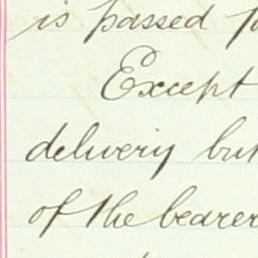 is passed
Except
delivery but
of the bearer